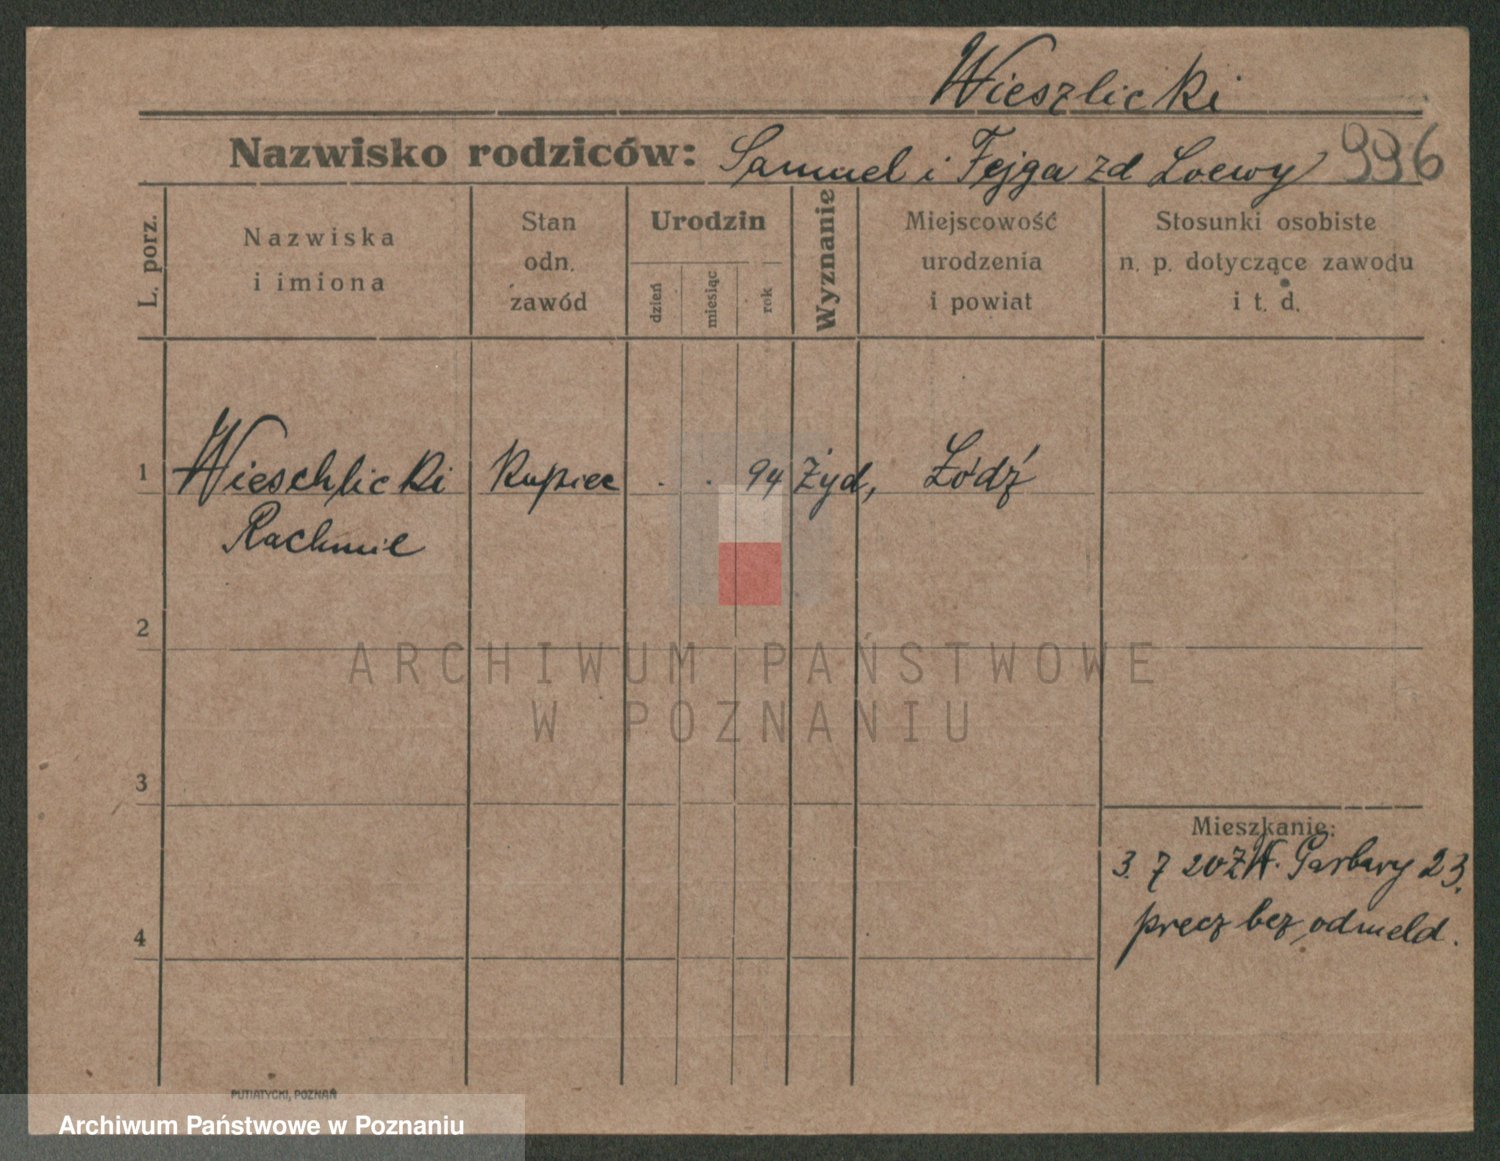 Wieszlicki
Nazwisko rodziców: Samuel i Fejga zd Loewy 996
L. porz.
Nazwiska
i imiona
Stan
odn.
zawód
Urodzin
dzień
miesiąc
rok
Wyznanie
Miejscowość
urodzenia
i powiat
Stosunki osobiste
n. p. dotyczące zawodu
i t. d.
1 Wieschlicki Kupiec . . 94 Żyd, Łódź
Rachmil
2
ARCHIWUM PAŃSTWOWE
W POZNANIU
3
Mieszkanie:
3. 7 20 Garbary 23.
4
precz bez odmeld.
PUTIATYCKI, POZNAŃ
Archiwum Państwowe w Poznaniu